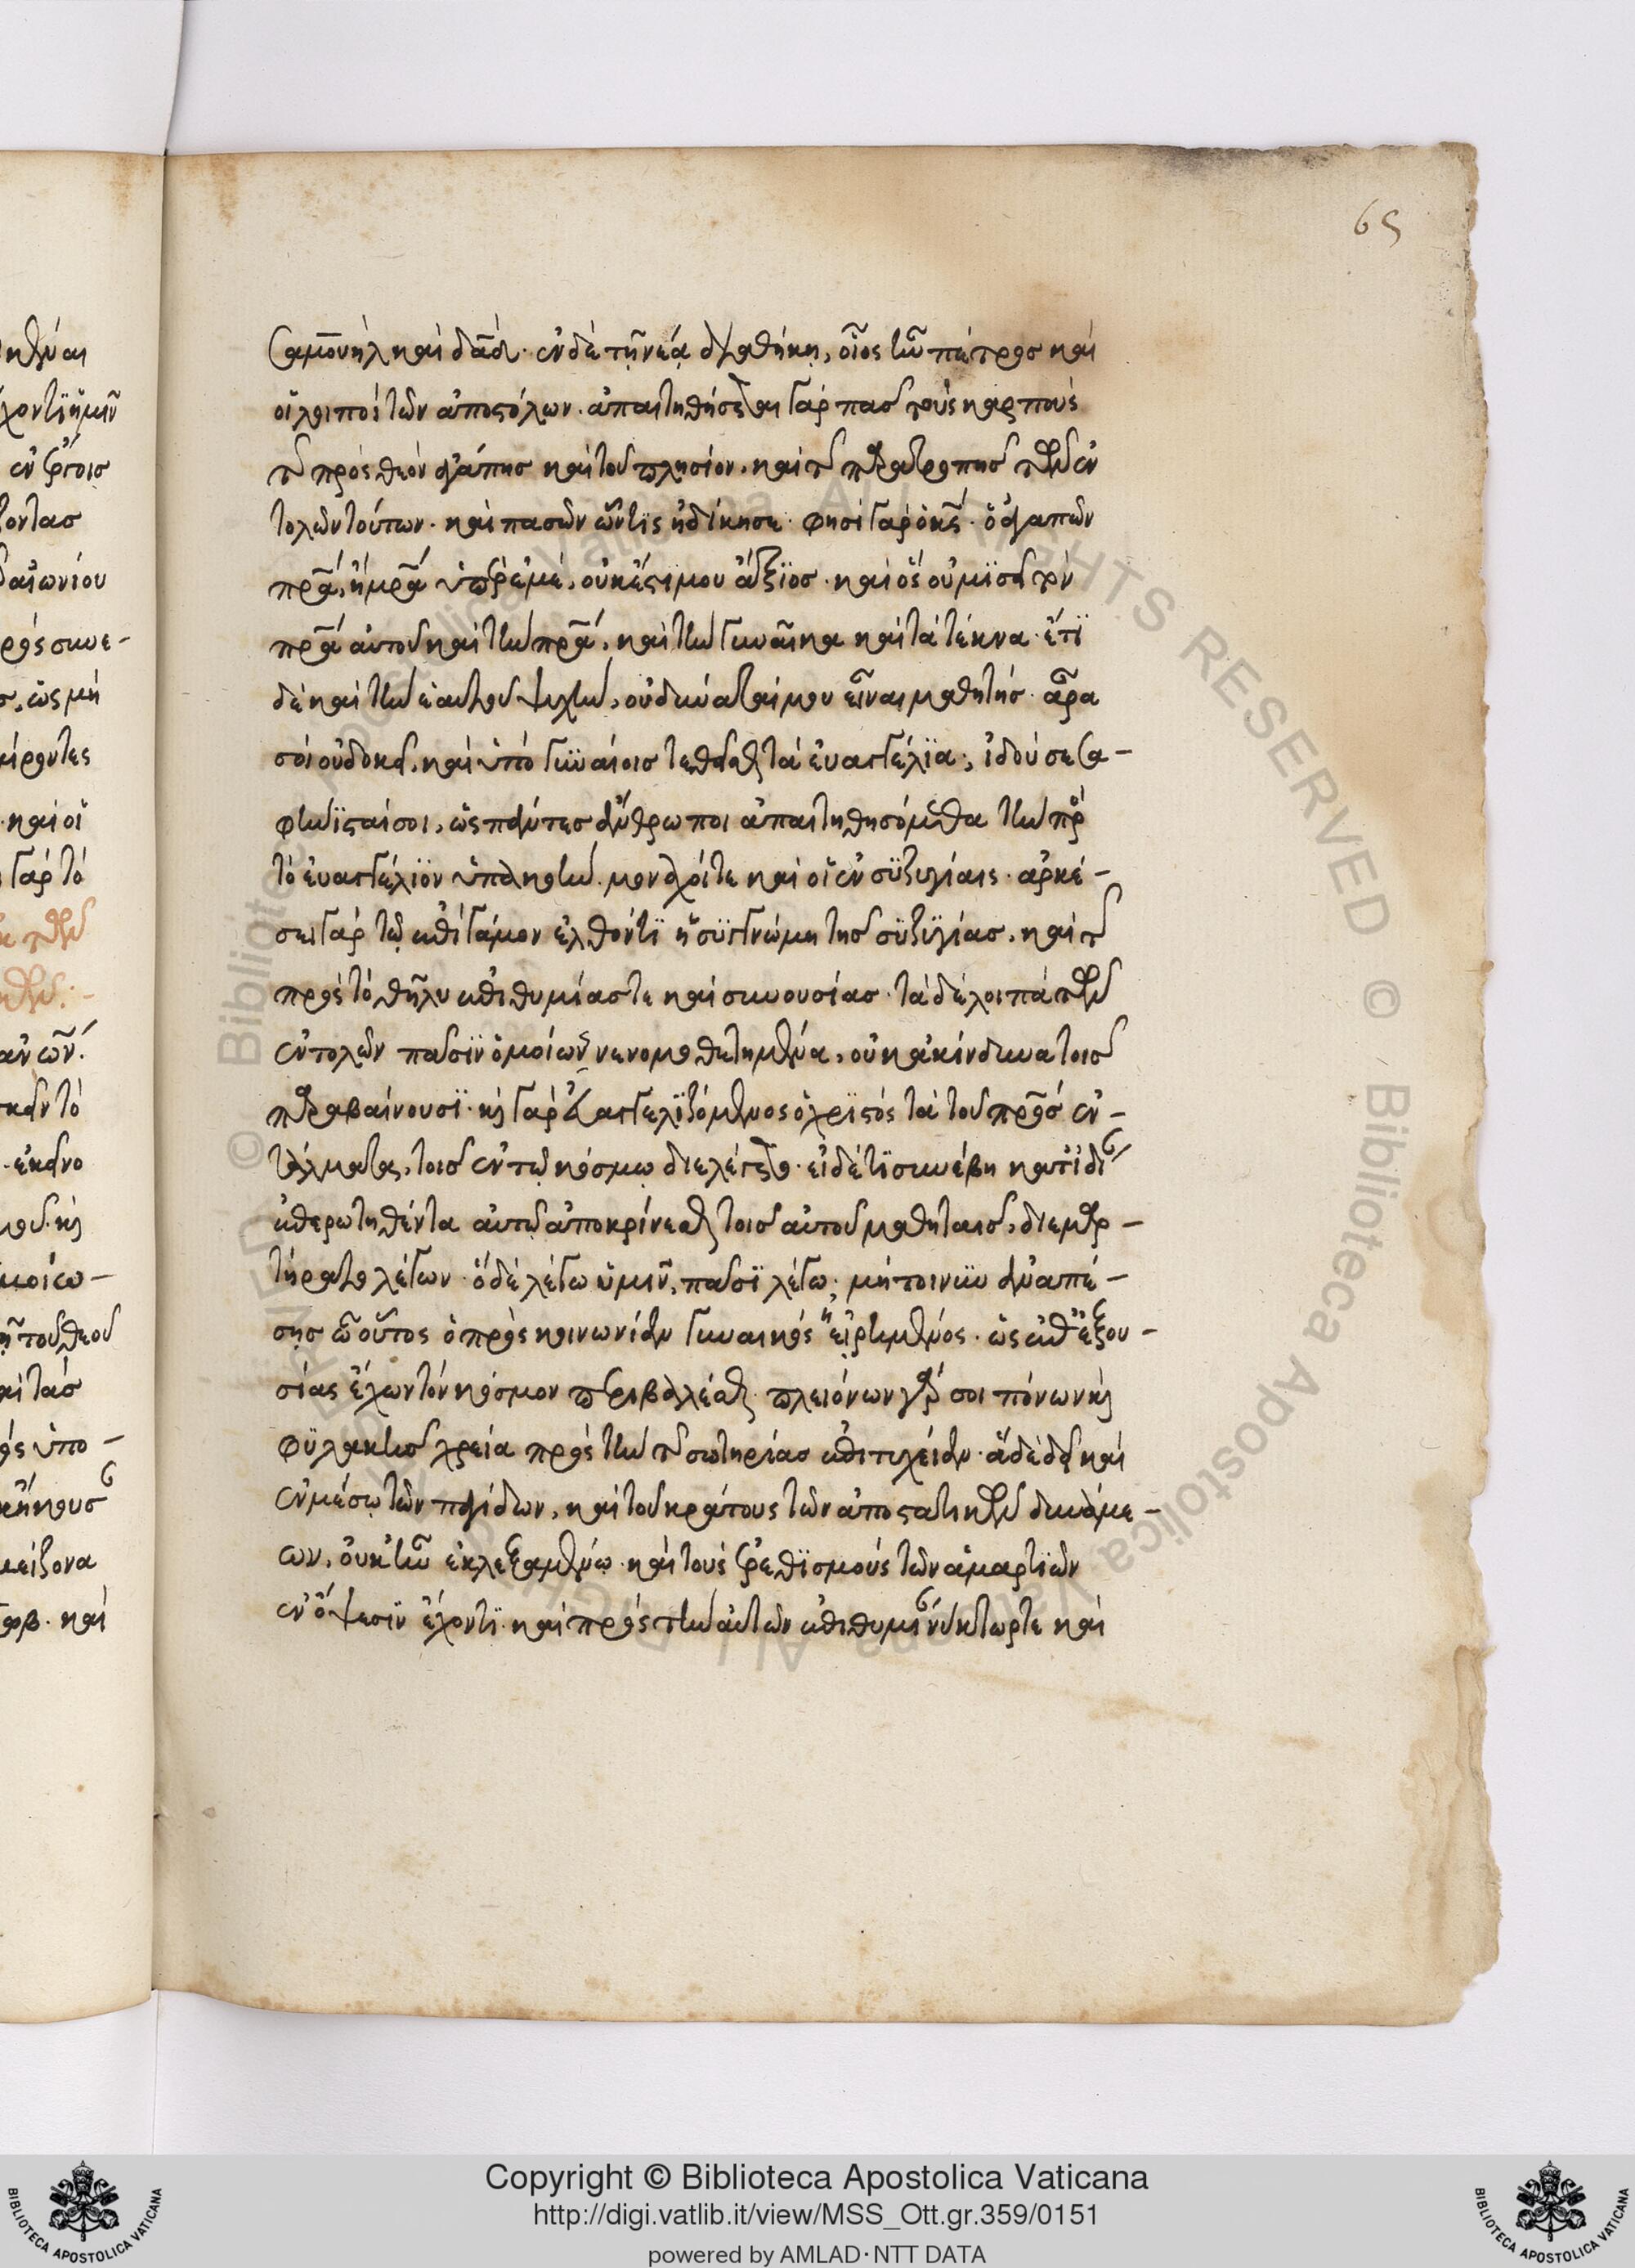 65
Σαμουὴλ καὶ δᾱδ. ἐν δὲ τῇ νέᾳ διαθήκῃ, οἷος ἦν πέτρος καὶ
οἱ λοιποὶ τῶν ἀποστόλων. ἀπαιτηθήσεται γὰρ πᾶς τοὺς καρποὺς
τῆς πρὸς θεὸν ἀγάπης καὶ τοῦ πλησίον. καὶ τῆς παρατροπῆς τῶν ἐν
τολῶν τούτων. καὶ πασῶν ὧν τίς ἠδίκησε. φησὶ γὰρ ὁ κ̄ς. ὁ ἀγαπῶν
πρ̄α, ἢ μρ̄α ὑπὲρ ἐμέ, οὐκ ἔστι μου ἄξϊος. καὶ ὃς οὐ μϊσεῖ τὸν
πρ̄α αὐτοῦ καὶ τὴν μρ̄α, καὶ τὴν γυναῖκα καὶ τὰ τέκνα. ἔτϊ
δὲ καὶ τὴν ἑαυτοῦ ψυχήν, οὐ δύναταί μου εἶναι μαθητής. ἆρα
σοὶ οὐ δοκεῖ, καὶ ὑπὸ γυναίοις τεθεῖσθαι τὰ εὐαγγέλϊα; ἰδού σε σα-
φηνϊσταί σοι, ὡς πάντες ἄνθρωποι ἀπαιτηθησόμεθα τὴν πρὸς
τὸ εὐαγγέλϊον ὑπακοήν. μοναχοί τε καὶ οἱ ἐν συζυγίαις. ἀρκέ-
σει γὰρ τῷ ἐπὶ γάμον ἐλθόντϊ ἡ συγγνώμη τῆς συζυγίας. καὶ τῆς
πρὸς τὸ θῆλυ ἐπιθυμίας τε καὶ συνουσίας. τὰ δὲ λοιπὰ τῶν
ἐντολῶν πᾶσϊν ὁμοίως νενομοθετημένα, οὐκ ἀκίνδυνα τοῖς
παραβαίνουσϊ. καὶ γὰρ εὐαγγελϊζόμενος ὁ χρϊστὸς τὰ τοῦ πρ̄ς ἐν-
τάλματα, τοῖς ἐν τῷ κόσμῳ διελέγετο. εἰ δέ τϊ συνέβη κατιδίαν
ἐπερωτηθέντα αὐτὸν ἀποκρίνεσθαι τοῖς αὐτοῦ μαθηταῖς, διεμαρ-
τύρατο λέγων. ὃ δὲ λέγω ὑμῖν, πᾶσϊ λέγω. μὴ τοίνυν ἀναπέ-
σῃς ὦ οὗτος ὁ πρὸς κοινωνίαν γυναικὸς ᾑρημένος. ὡς ἐπ' ἐξου-
σίας ἔχων τὸν κόσμον περιβαλέσθαι. πλειόνων γάρ σοι πόνων καὶ
φυλακῆς χρεία πρὸς τὴν τῆς σωτηρίας ἐπιτυχείαν. ἅτε δὴ καὶ
ἐν μέσῳ τῶν παγίδων, καὶ τοῦ κράτους τῶν ἀποστατικῶν δυνάμε-
ων. οὐκ ἦν ἐκλεξαμένῳ. καὶ τοὺς ἐρεθϊσμοὺς τῶν ἁμαρτϊῶν
ἐν ὄψεσϊν ἔχοντϊ. καὶ πρὸς τὴν αὐτῶν ἐπιθυμίαν νύκτωρ τε καὶ
Copyright © Biblioteca Apostolica Vaticana
http://digi.vatlib.it/view/MSS_Ott.gr.359/0151
powered by AMLAD·NTT DATA
BIBLIOTECA APOSTOLICA VATICANA
BIBLIOTECA APOSTOLICA VATICANA